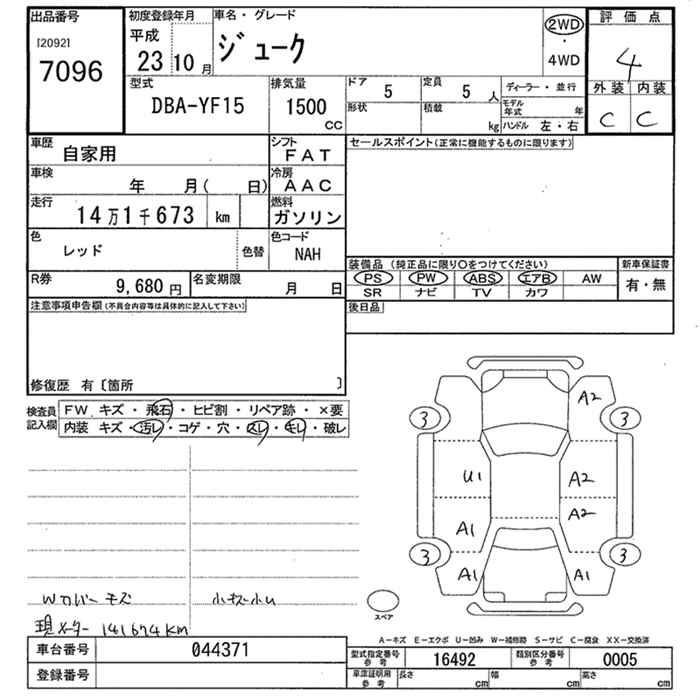 出品番号
[2092]
7096
初度登録年月
平成
23 10 月
車名・グレード
ジューク
2WD
・
4WD
評価点
4
外装 内装
C C
型式
DBA-YF15
排気量
1500
CC
ドア 5
定員 5 人
形状
積載 kg
ディーラー・並行
モデル年式 年
ハンドル 左・右
車歴
自家用
シフト
FAT
セールスポイント(正常に機能するものに限ります)
車検
年 月( 日)
冷房
AAC
走行
14万1千673 km
燃料
ガソリン
色
レッド
色替
色コード
NAH
R券
9,680 円
名変期限
月 日
装備品 (純正品に限り○をつけてください)
PS PW ABS エアB AW
SR ナビ TV カワ
新車保証書
有・無
注意事項申告欄(不具合内容等は具体的に記入して下さい)
後日品
修復歴 有〔箇所 〕
検査員記入欄
FW キズ・飛石・ヒビ割・リペア跡・×要
内装 キズ・汚レ・コゲ・穴・スレ・キレ・破レ
A2
3 3
U1 A2
A2
A1
3 3
A1 A1
Wカバー キズ
小キズ小U
現メーター 141674KM
スペア
A-キズ E-エクボ U-凹み W-補修跡 S-サビ C-腐食 XX-交換済
車台番号 044371
登録番号
型式指定番号 参考 16492
類別区分番号 参考 0005
車庫証明用 参考
長さ cm
幅 cm
高さ cm